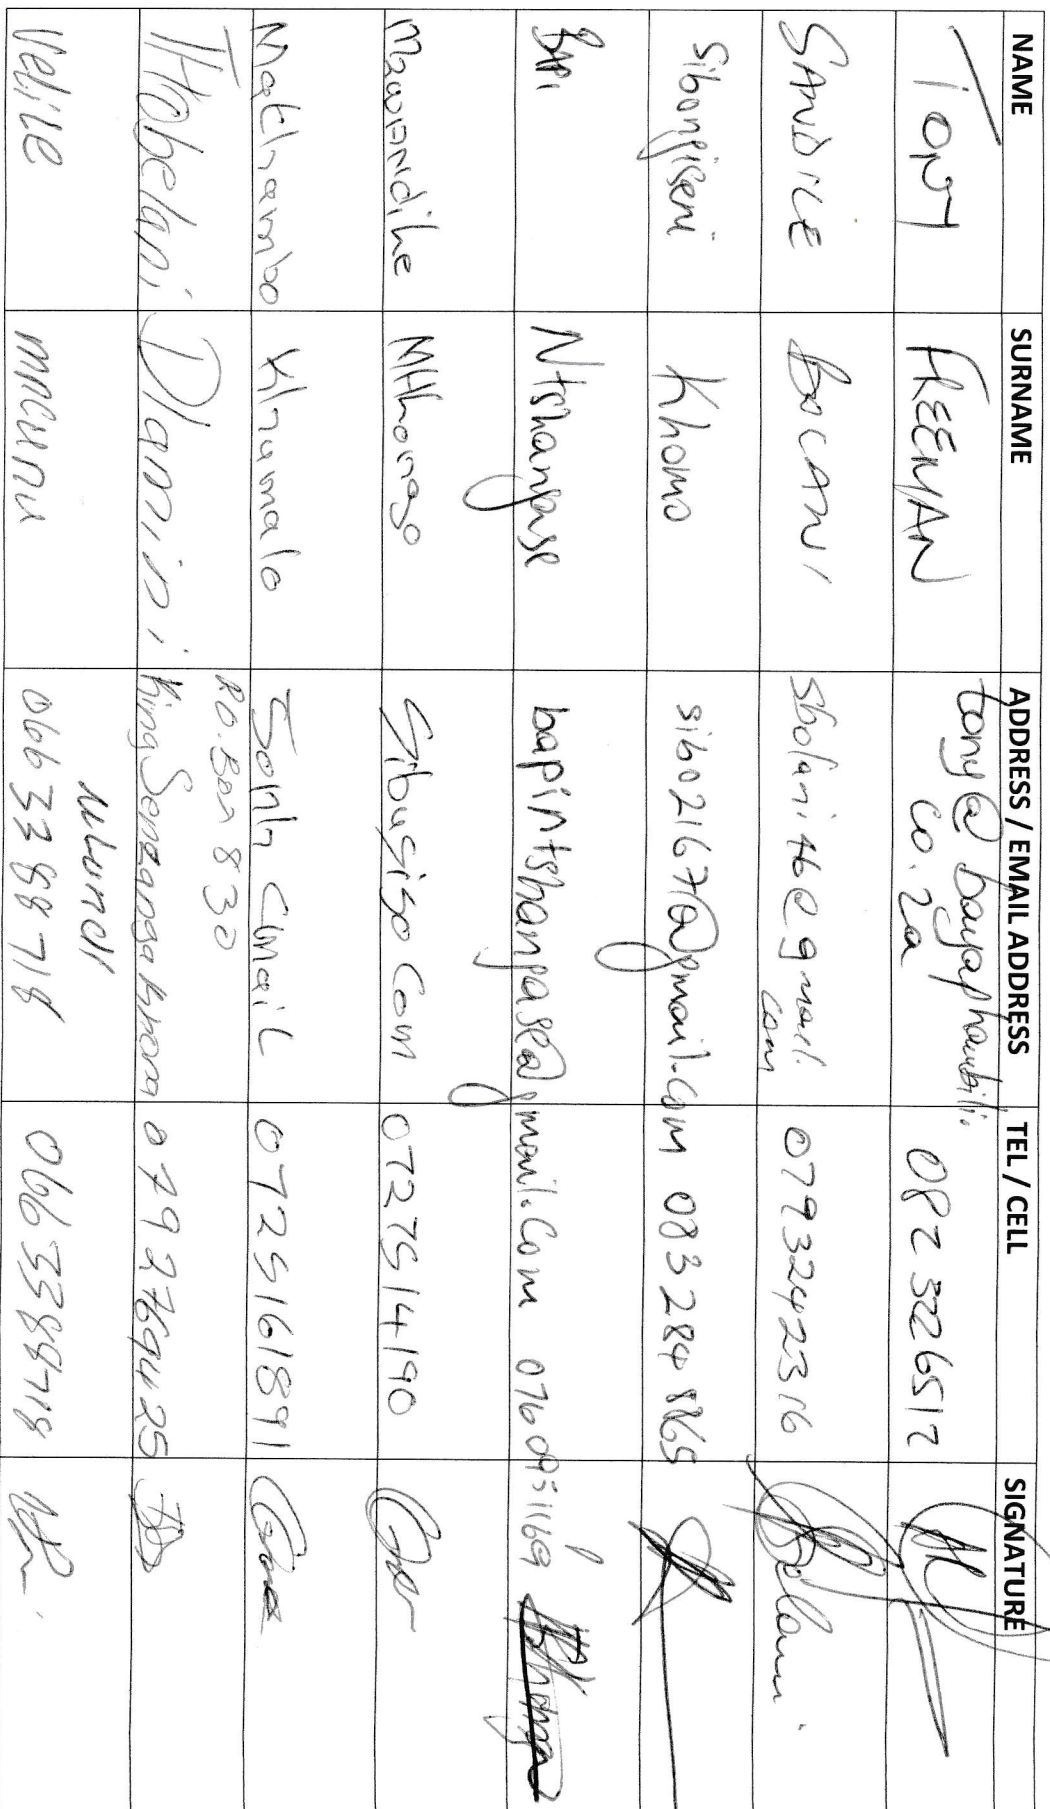 NAME SURNAME ADDRESS / EMAIL ADDRESS TEL / CELL SIGNATURE
Tony FREEMAN tony@bayaphambili. 082 3226512
co.za
SANDILE sbolani46@gmail. 0793242316
com
Sibongiseni Khomo sibo2167@gmail.com 083 284 8865
BAPI Ntshangase bapintshangase@gmail.com
MawaNdihe MHlongo Sibusiso Com 0727514190
Mathambo Khzumalo 0725161891
P.O. Box 830
THobelani Dlamini King Senzangakhona
Velile mncunu ulundi
066 3388 718 066 3388718